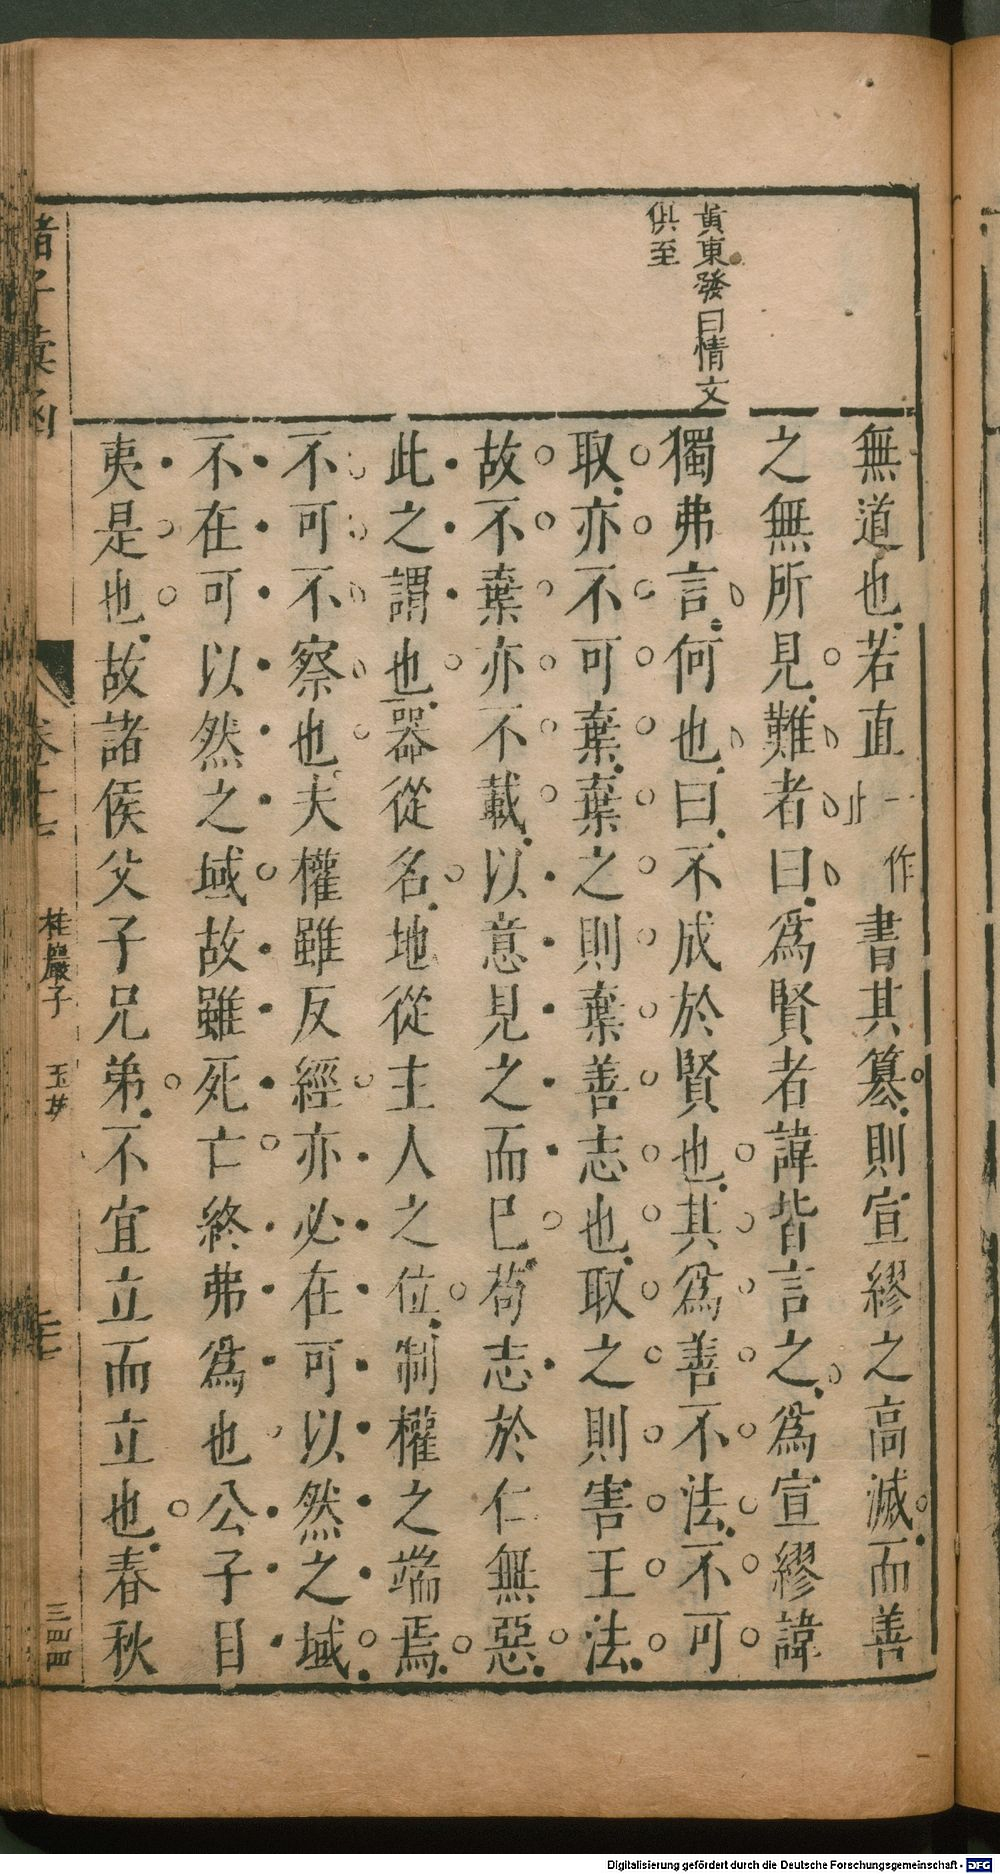 黃東發曰情文
供至
無道也若直一作止書其篡則宣繆之高滅而善
之無所見難者曰爲賢者諱皆言之爲宣繆諱
獨弗言何也曰不成於賢也其爲善不法不可
取亦不可棄棄之則棄善志也取之則害王法
故不棄亦不載以意見之而已苟志於仁無惡
此之謂也器從名地從主人之位制權之端焉
不可不察也夫權雖反經亦必在可以然之域
不在可以然之域故雖死亡終弗爲也公子目
夷是也故諸侯父子兄弟不宜立而立也春秋
諸子彙函 卷十七 桂巖子 玉英
Digitalisierung gefördert durch die Deutsche Forschungsgemeinschaft - DFG